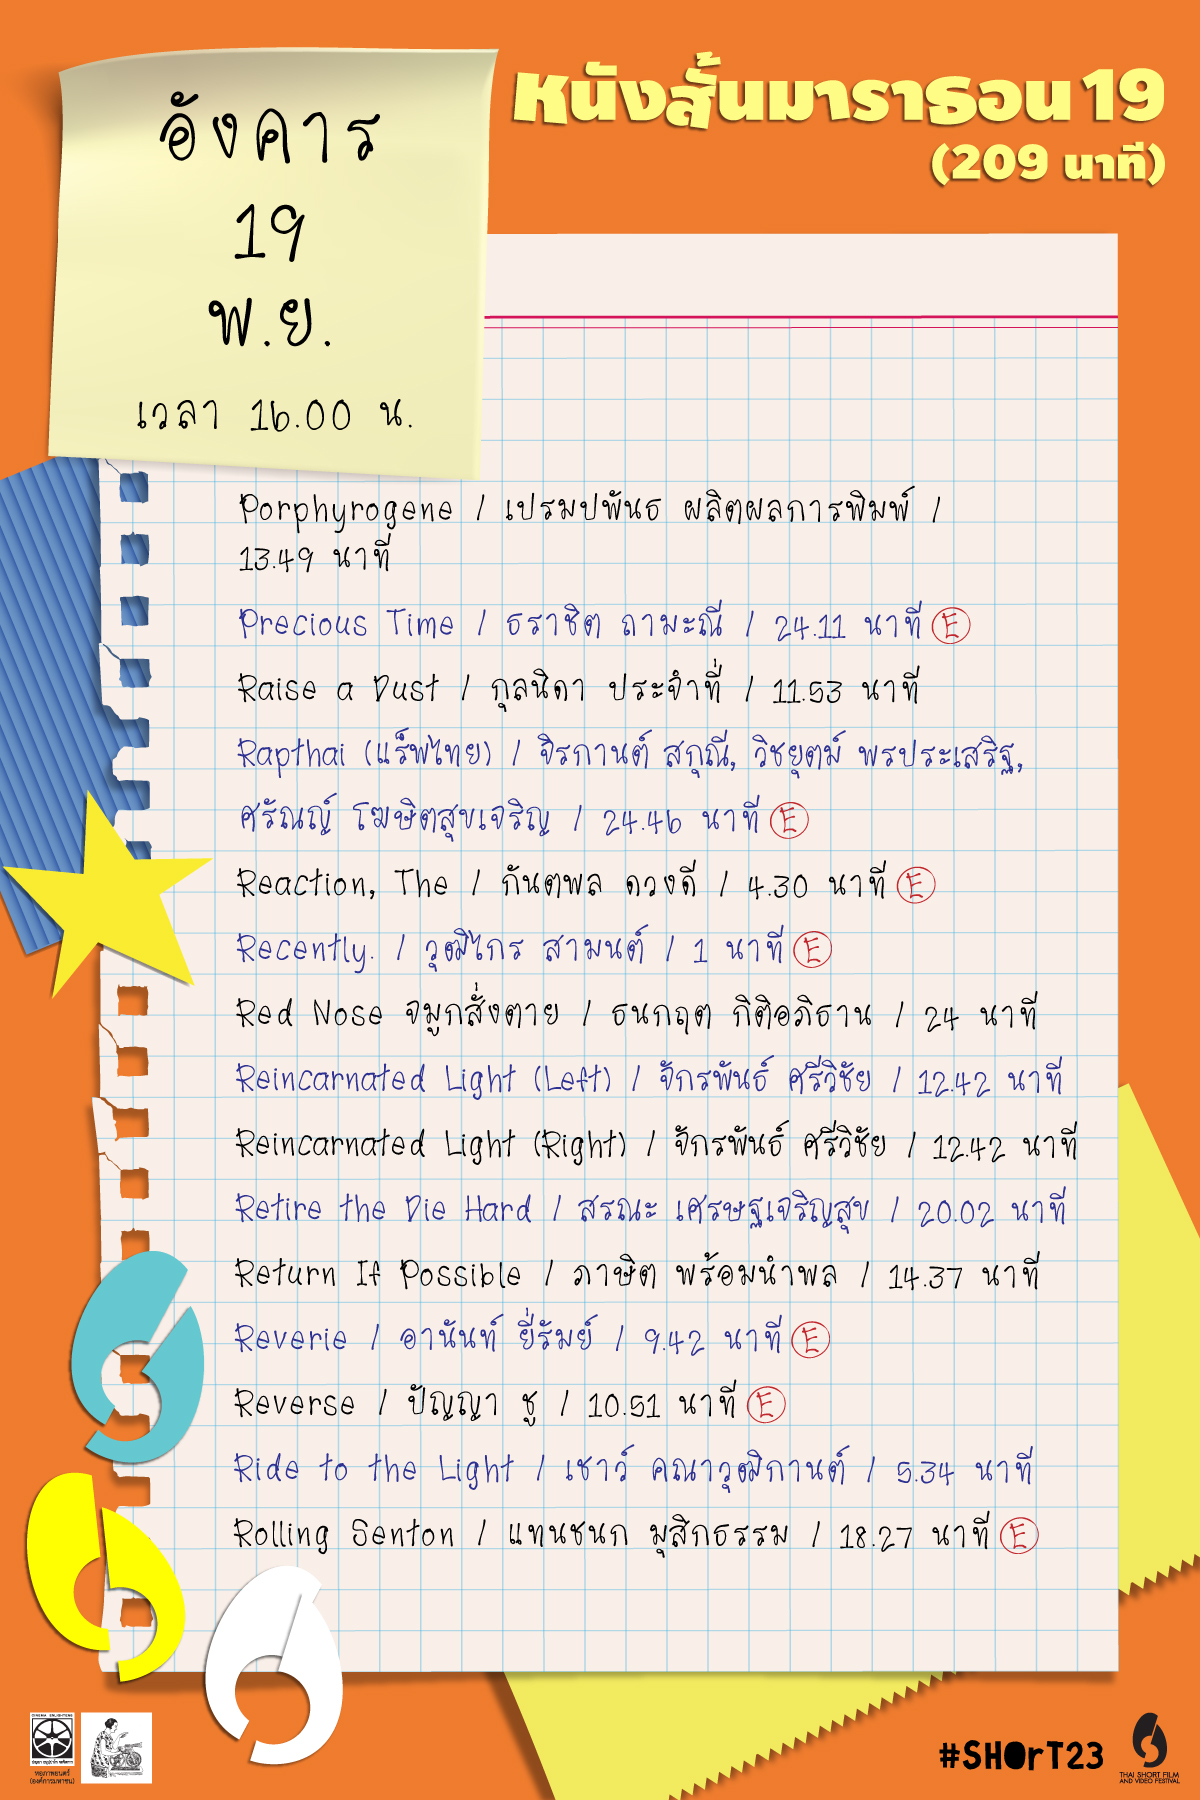 หนังสั้นมาราธอน 19
(209 นาที)
อังคาร
19
พ.ย.
เวลา 16.00 น.
Porphyrogene / เปรมปพันธ ผลิตผลการพิมพ์ /
13.49 นาที
Precious Time / ธราชิต ถามะณี / 24.11 นาที E
Raise a Dust / กุลนิดา ประจำที่ / 11.53 นาที
Rapthai (แร็พไทย) / จิรกานต์ สกุณี, วิชยุตม์ พรประเสริฐ,
ศรัณญ์ โฆษิตสุขเจริญ / 24.46 นาที E
Reaction, The / กันตพล ดวงดี / 4.30 นาที E
Recently. / วุฒิไกร สามนต์ / 1 นาที E
Red Nose จมูกสั่งตาย / ธนกฤต กิติอภิธาน / 24 นาที
Reincarnated Light (Left) / จักรพันธ์ ศรีวิชัย / 12.42 นาที
Reincarnated Light (Right) / จักรพันธ์ ศรีวิชัย / 12.42 นาที
Retire the Die Hard / สรณะ เศรษฐเจริญสุข / 20.02 นาที
Return If Possible / ภาษิต พร้อมนำพล / 14.37 นาที
Reverie / อานันท์ ยี่รัมย์ / 9.42 นาที E
Reverse / ปัญญา ชู / 10.51 นาที E
Ride to the Light / เชาว์ คณาวุฒิกานต์ / 5.34 นาที
Rolling Senton / แทนชนก มุสิกธรรม / 18.27 นาที E
หอภาพยนตร์
(องค์การมหาชน)
#SHOrT23
THAI SHORT FILM
AND VIDEO FESTIVAL